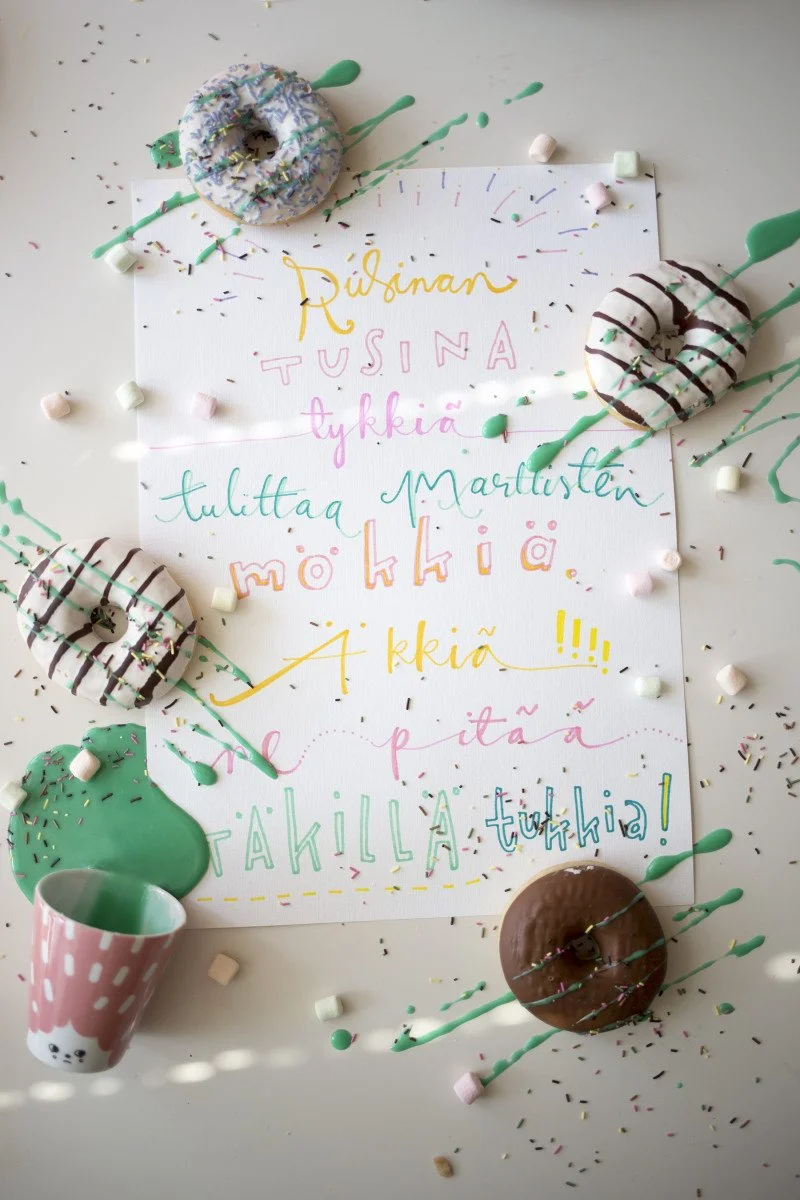 Rusinan
TUSINA
tykkiä
tulittaa Marttisten
mökkiä.
Äkkiä!!!!
ne pitää
TÄKILLÄ tukkia!